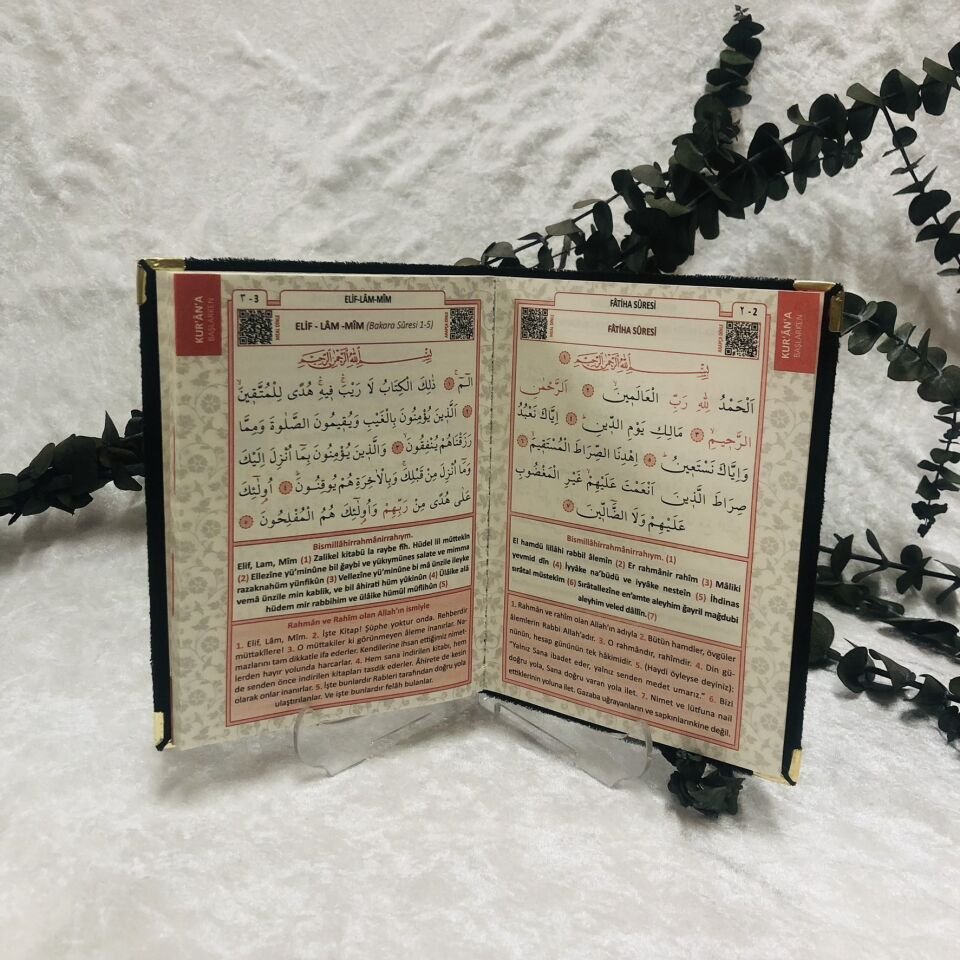 KUR'ÂN'A
BAŞLARKEN
FÂTİHA SÛRESİ
٢ - 2
MEAL DİNLE
FÂTİHA SÛRESİ
ARAPÇA DİNLE
بِسْمِ اللّٰهِ الرَّحْمٰنِ الرَّحِيمِ ١
اَلْحَمْدُ لِلّٰهِ رَبِّ الْعَالَمِينَۙ ٢ اَلرَّحْمٰنِ
الرَّحِيمِۙ ٣ مَالِكِ يَوْمِ الدِّينِۜ ٤ اِيَّاكَ نَعْبُدُ
وَاِيَّاكَ نَسْتَعِينُۜ ٥ اِهْدِنَا الصِّرَاطَ الْمُسْتَقِيمَۙ ٦
صِرَاطَ الَّذِينَ اَنْعَمْتَ عَلَيْهِمْۙ غَيْرِ الْمَغْضُوبِ
عَلَيْهِمْ وَلَا الضَّالِّينَ ٧
Bismillâhirrahmânirrahıym. (1)
El hamdü lillâhi rabbil âlemin (2) Er rahmânir rahîm (3) Mâliki
yevmid dîn (4) İyyâke na'büdü ve iyyâke nesteîn (5) İhdinas
sırâtal müstekîm (6) Sırâtallezîne en'amte aleyhim ğayril mağdubi
aleyhim veled dâllîn.(7)
1. Rahmân ve rahîm olan Allah'ın adıyla 2. Bütün hamdler, övgüler
âlemlerin Rabbi Allah'adır. 3. O rahmândır, rahîmdir. 4. Din gü-
nünün, hesap gününün tek hâkimidir. 5. (Haydi öyleyse deyiniz):
"Yalnız Sana ibadet eder, yalnız senden medet umarız." 6. Bizi
doğru yola, Sana doğru varan yola ilet. 7. Nimet ve lütfuna nail
ettiklerinin yoluna ilet. Gazaba uğrayanların ve sapkınlarınkine değil.
KUR'ÂN'A
BAŞLARKEN
٣ - 3
ELİF-LÂM-MÎM
MEAL DİNLE
ELİF - LÂM -MÎM (Bakara Sûresi 1-5)
ARAPÇA DİNLE
بِسْمِ اللّٰهِ الرَّحْمٰنِ الرَّحِيمِ
الٓمٓۚ ١ ذٰلِكَ الْكِتَابُ لَا رَيْبَۚۛ فِيهِۚۛ هُدًى لِلْمُتَّقِينَۙ
٢ اَلَّذِينَ يُؤْمِنُونَ بِالْغَيْبِ وَيُقِيمُونَ الصَّلٰوةَ وَمِمَّا
رَزَقْنَاهُمْ يُنْفِقُونَۙ ٣ وَالَّذِينَ يُؤْمِنُونَ بِمَٓا اُنْزِلَ اِلَيْكَ
وَمَٓا اُنْزِلَ مِنْ قَبْلِكَۚ وَبِالْاٰخِرَةِ هُمْ يُوقِنُونَۜ ٤ اُو۬لٰٓئِكَ
عَلٰى هُدًى مِنْ رَبِّهِمْ وَاُو۬لٰٓئِكَ هُمُ الْمُفْلِحُونَ ٥
Bismillâhirrahmânirrahıym.
Elif, Lam, Mîm (1) Zalikel kitabü la raybe fîh. Hüdel lil müttekîn
(2) Ellezîne yü'minûne bil ğaybi ve yükıymünes salate ve mimma
razaknahüm yünfikûn (3) Vellezîne yü'minûne bi mâ ünzile ileyke
vemâ ünzile min kablik, ve bil âhirati hüm yûkinûn (4) Ülâike alâ
hüdem mir rabbihim ve ülâike hümül müflihûn (5)
Rahmân ve Rahîm olan Allah'ın ismiyle
1. Elif, Lâm, Mîm. 2. İşte Kitap! Şüphe yoktur onda. Rehberdir
müttakîlere! 3. O müttakiler ki görünmeyen âleme inanırlar. Na-
mazlarını tam dikkatle ifa ederler. Kendilerine ihsan ettiğimiz nimet-
lerden hayır yolunda harcarlar. 4. Hem sana indirilen kitabı, hem
de senden önce indirilen kitapları tasdik ederler. Âhirete de kesin
olarak onlar inanırlar. 5. İşte bunlardır Rableri tarafından doğru yola
ulaştırılanlar. Ve işte bunlardır felâh bulanlar.